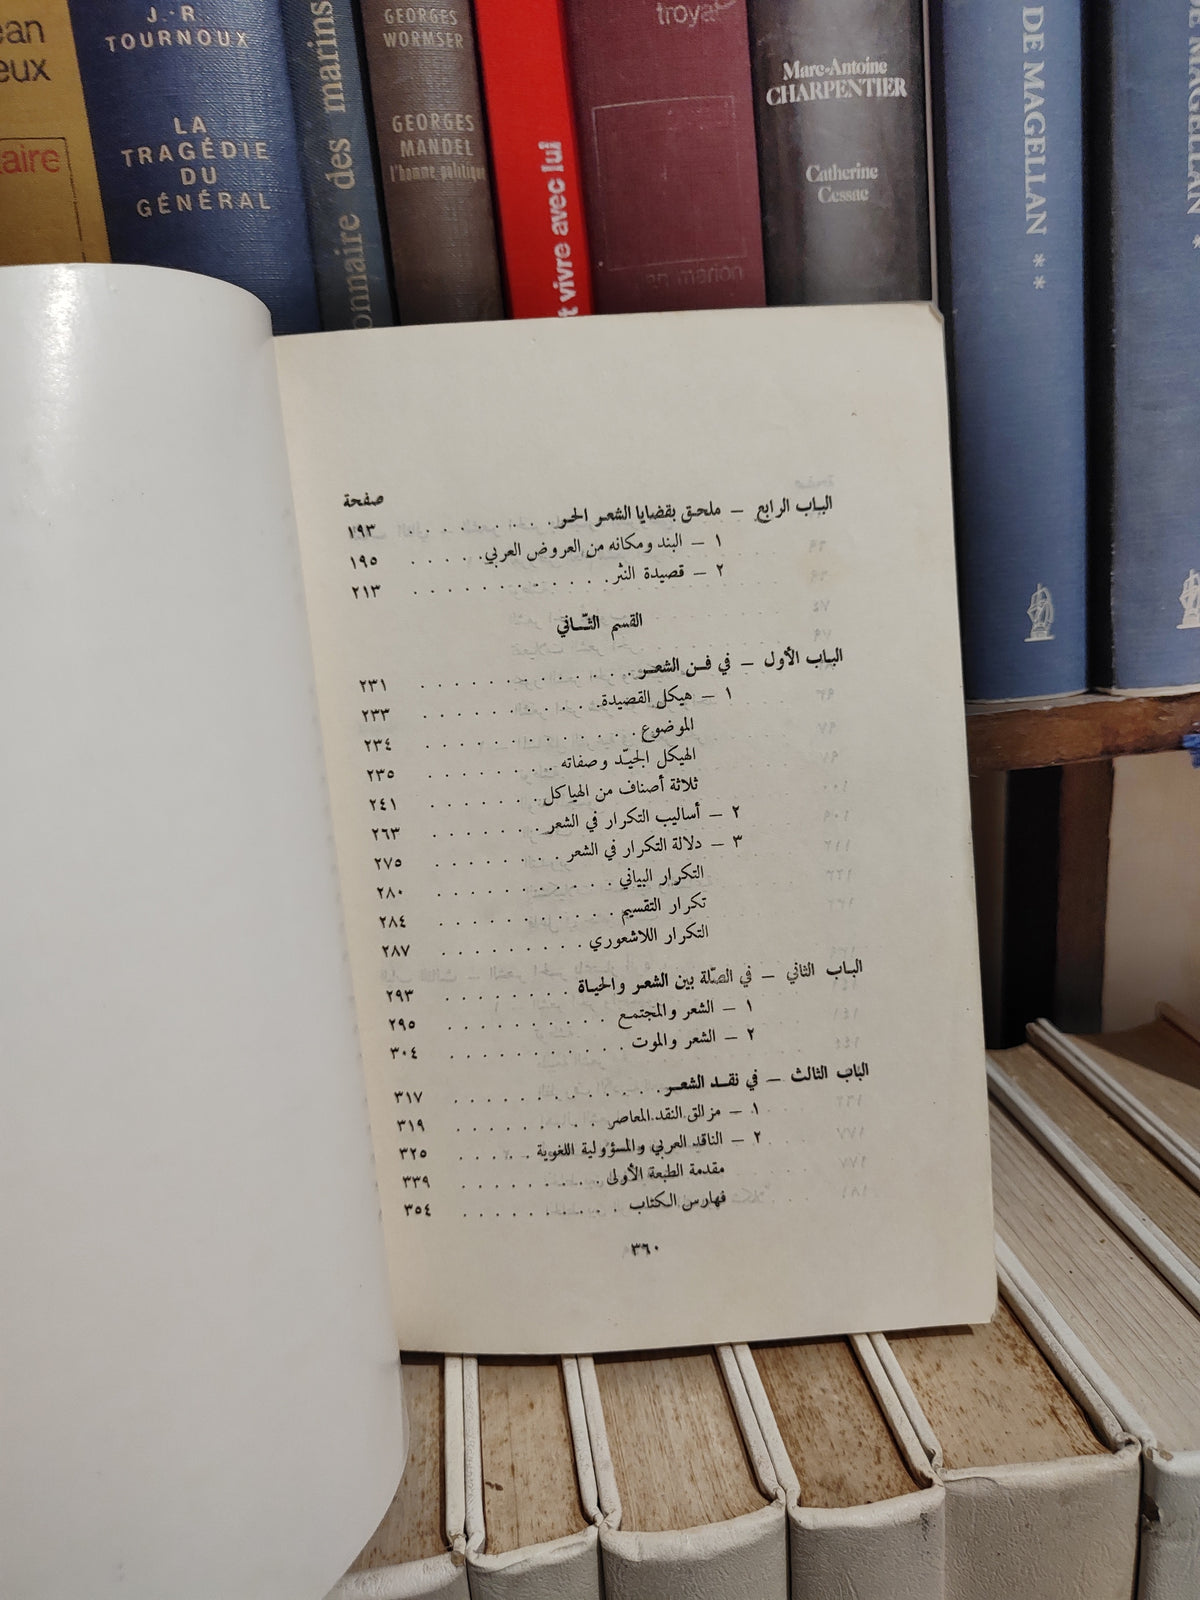 J.-R.
TOURNOUX
LA
TRAGÉDIE
DU
GÉNÉRAL
des marins
GEORGES
WORMSER
GEORGES
MANDEL
l'homme politique
vivre avec lui
troyat
Marc-Antoine
CHARPENTIER
Catherine
Cessac
DE MAGELLAN **
صفحة
الباب الرابع — ملحق بقضايا الشعر الحر . . . . . . . ١٩٣
١ — البند ومكانه من العروض العربي . . . . . ١٩٥
٢ — قصيدة النثر . . . . . . . . . . . ٢١٣
القسم الثّاني
الباب الأول — في فن الشعر . . . . . . . . . . . ٢٣١
١ — هيكل القصيدة . . . . . . . . . . ٢٣٣
الموضوع . . . . . . . . . . . . ٢٣٤
الهيكل الجيّد وصفاته . . . . . . . . ٢٣٥
ثلاثة أصناف من الهياكل . . . . . . . ٢٤١
٢ — أساليب التكرار في الشعر . . . . . . ٢٦٣
٣ — دلالة التكرار في الشعر . . . . . . . ٢٧٥
التكرار البياني . . . . . . . . . . ٢٨٠
تكرار التقسيم . . . . . . . . . . ٢٨٤
التكرار اللاشعوري . . . . . . . . . ٢٨٧
الباب الثاني — في الصّلة بين الشعر والحياة . . . . . . . . ٢٩٣
١ — الشعر والمجتمع . . . . . . . . . ٢٩٥
٢ — الشعر والموت . . . . . . . . . . ٣٠٤
الباب الثالث — في نقد الشعر . . . . . . . . . . . ٣١٧
١ — مزالق النقد المعاصر . . . . . . . . ٣١٩
٢ — الناقد العربي والمسؤولية اللغوية . . . . . ٣٢٥
مقدمة الطبعة الأولى . . . . . . . . . ٣٣٩
فهارس الكتاب . . . . . . . . . . ٣٥٤
٣٦٠